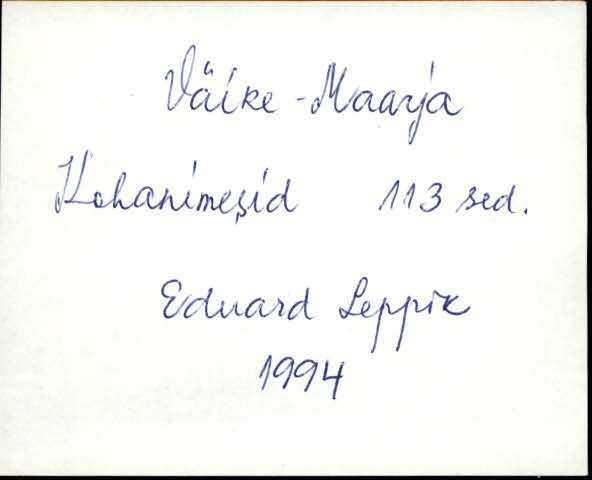 Väike-Maarja
Kohanimesid 113 sed.
Eduard Leppik
1994